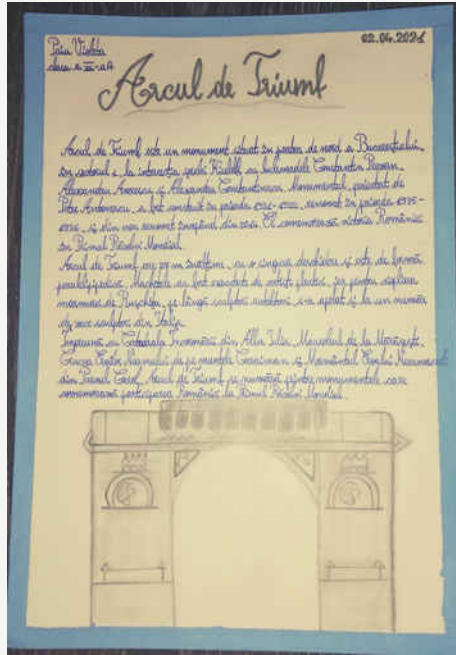 Paiu Violeta
clasa a III-a A
02.06.2021
Arcul de Triumf
Arcul de Triumf este un monument situat în partea de nord a Bucureștiului,
în sectorul 1, la intersecția șoselei Kiseleff cu bulevardele Constantin Prezan,
Alexandru Averescu și Alexandru Constantinescu. Monumentul, proiectat de
Petre Antonescu, a fost construit în perioada 1921-1922, renovat în perioada 1935-
1936, și din nou renovat începând din 2014. El comemorează victoria României
în Primul Război Mondial.
Arcul de Triumf are 27 m înălțime, cu o singură deschidere și este de formă
paralelipipedică. Machetele au fost executate de artiști plastici, iar pentru cioplirea
marmurei de Rușchița, pe lângă sculptori autohtoni s-a apelat și la un număr
de zece sculptori din Italia.
Împreună cu Catedrala Încoronării din Alba Iulia, Mausoleul de la Mărășești,
Crucea Eroilor Neamului de pe muntele Caraiman și Mormântul Eroului Necunoscut
din Parcul Carol, Arcul de Triumf se numără printre monumentele care
comemorează participarea României la Primul Război Mondial.